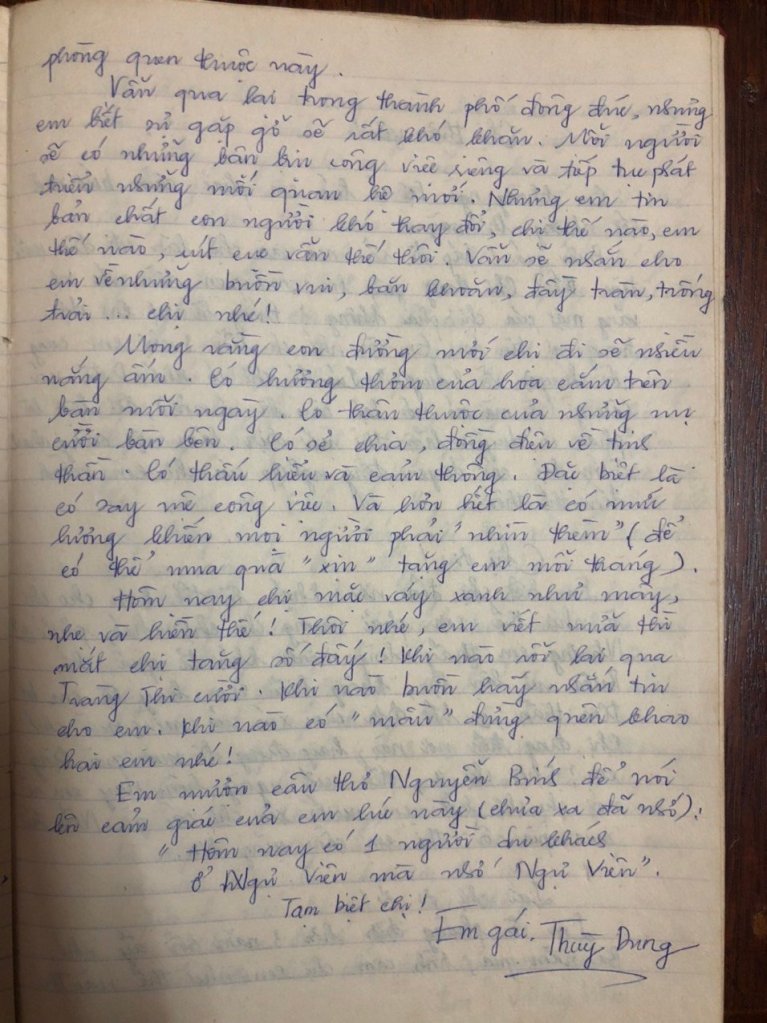 phòng quen thuộc này.
Vẫn qua lại trong thành phố đông đúc, nhưng
em biết sự gặp gỡ sẽ rất khó khăn. Mỗi người
sẽ có những bận bịu công việc riêng và tiếp tục phát
triển những mối quan hệ mới. Nhưng em tin
bản chất con người khó thay đổi, chị thế nào, em
thế nào, út cưc vẫn thế thôi. Vẫn sẽ nhắn cho
em về những buồn vui, băn khoăn, đầy tràn, trống
trải... chị nhé!
Mong rằng con đường mới chị đi sẽ nhiều
nắng ấm. Có hương thơm của hoa cắm trên
bàn mỗi ngày. Có thân thuộc của những nụ
cười bạn bên. Có sẻ chia, đồng điệu về tinh
thần. Có thấu hiểu và cảm thông. Đặc biệt là
có say mê công việc. Và hơn hết là có mức
lương khiến mọi người phải "nhìn thèm" (để
có thể mua quà "xịn" tặng em mỗi tháng).
Hôm nay chị mặc váy xanh như mây,
nhẹ và hiền thế! Thôi nhé, em viết nữa thì
mắt chị tăng số đấy! Khi nào rỗi lại qua
Tràng Thi cười. Khi nào buồn hãy nhắn tin
cho em. Khi nào có "mầu" đừng quên khao
hai em nhé!
Em mượn câu thơ Nguyễn Bính để nói
lên cảm giác của em lúc này (chưa xa đã nhớ):
"Hôm nay có 1 người du khách
Ở Ngự Viên mà nhớ Ngự Viên".
Tạm biệt chị!
Em gái,
Thùy Dung